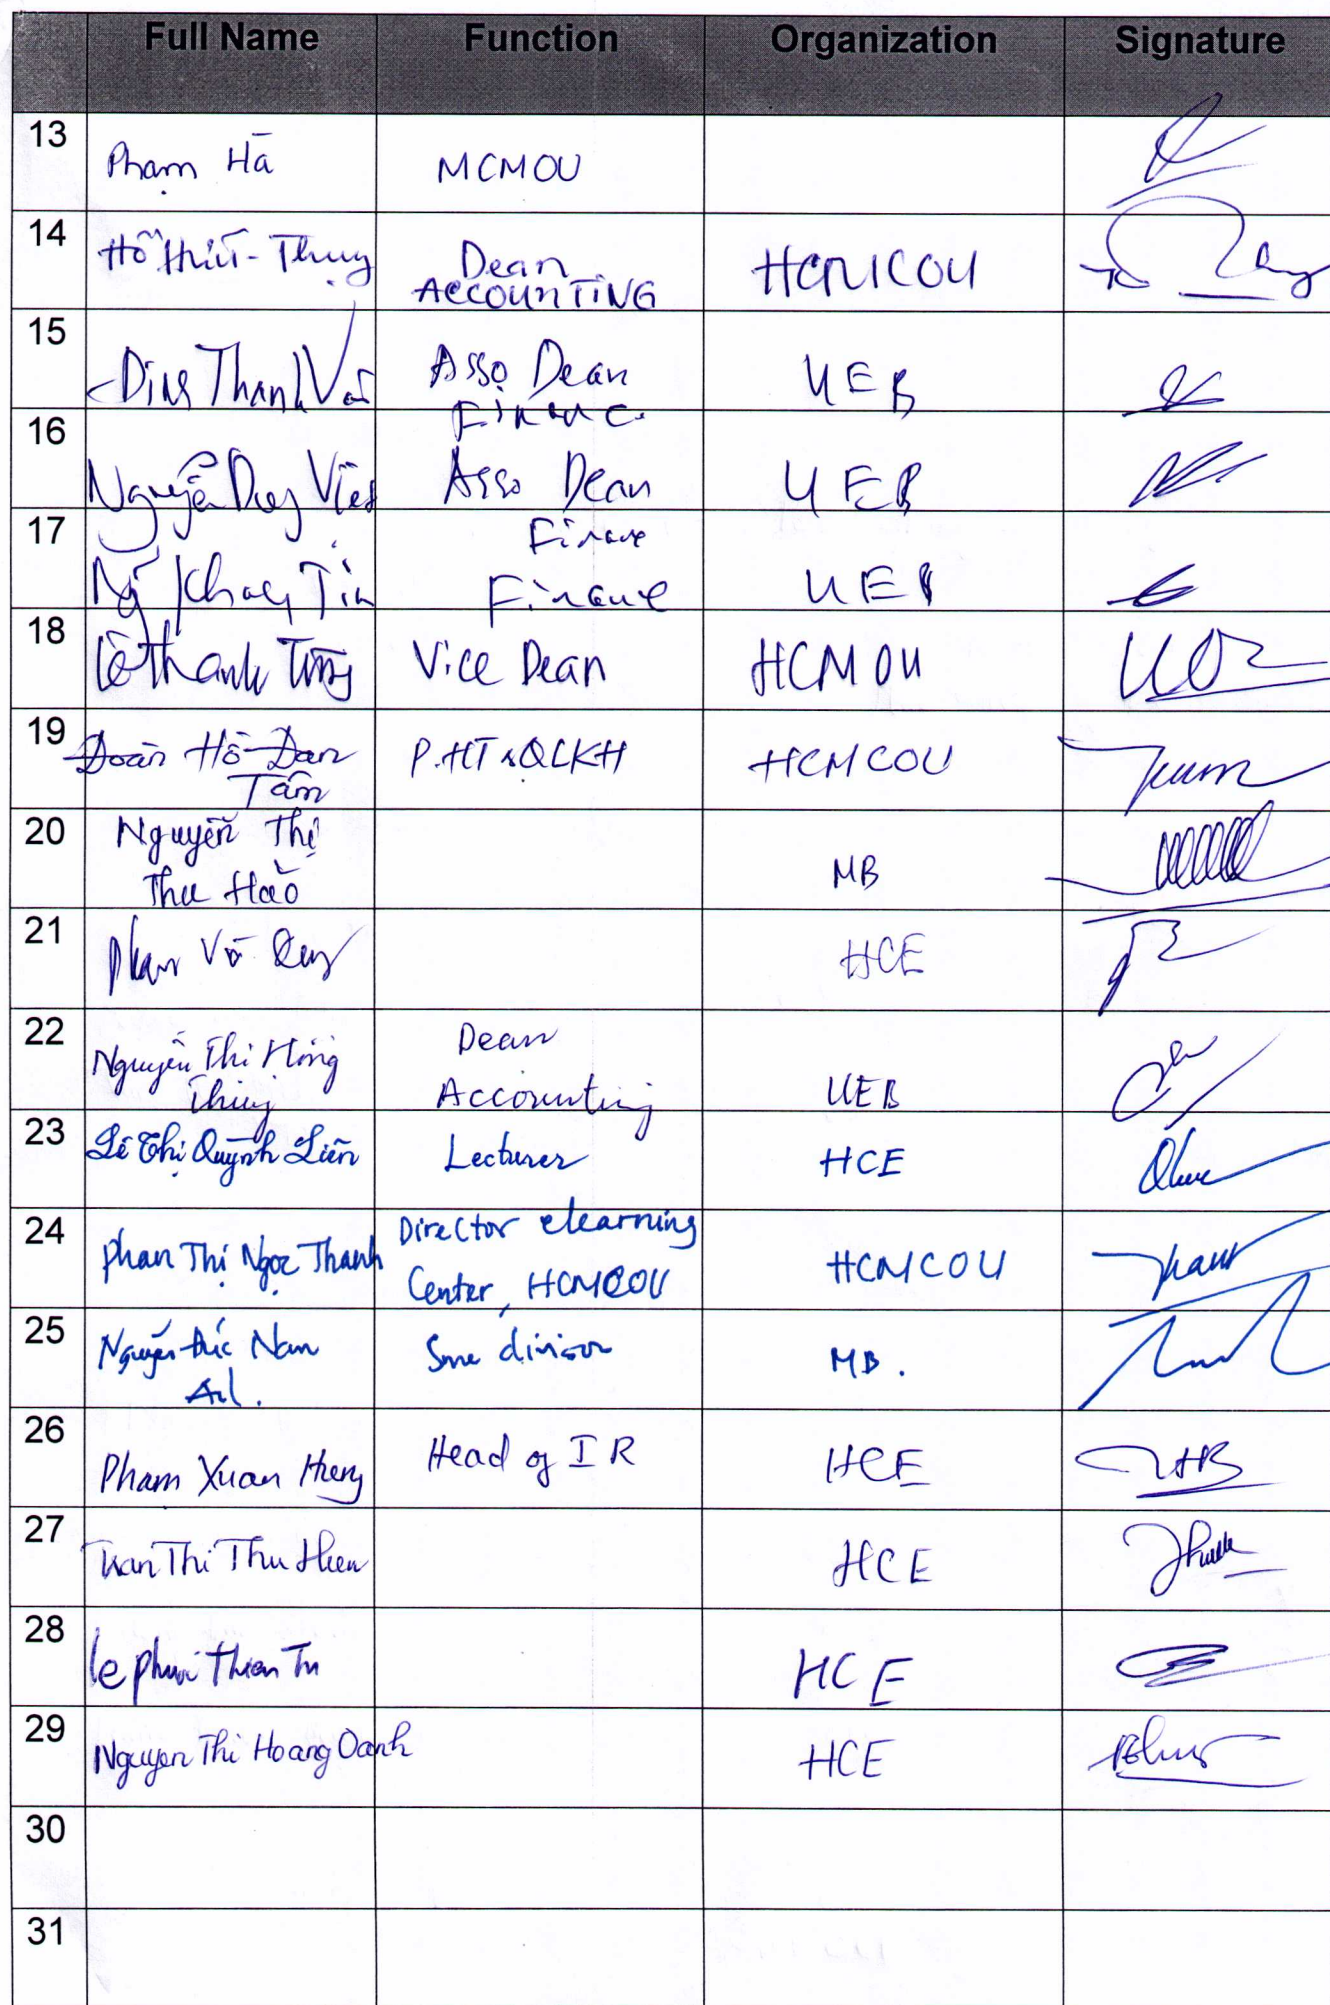 Full Name Function Organization Signature
13 Phạm Hà MCMOU
14 Hồ Hữu Thụy Dean ACCOUNTING HCMCOU
15 Đinh Thanh Vân Asso Dean Finance UEB
16 Nguyễn Duy Việt Asso Dean Finance UEB
17 Khắc Tín Finance UEB
18 Lê Thanh Tùng Vice Dean HCMOU
19 Đoàn Hồ Đan Tâm P.HT&QLKH HCMCOU
20 Nguyễn Thị Thu Hảo MB
21 Phan Võ HCE
22 Nguyễn Thị Hồng Thúy Dean Accounting UEB
23 Lê Thị Quỳnh Liên Lecturer HCE
24 Phan Thị Ngọc Thanh Director elearning Center, HCMCOU HCMCOU
25 Nguyễn Đức Nam Sme division MB.
26 Pham Xuan Hung Head of IR HCE
27 Tran Thi Thu Hien HCE
28 Le Phuoc Thien Tu HCE
29 Nguyen Thi Hoang Oanh HCE
30
31